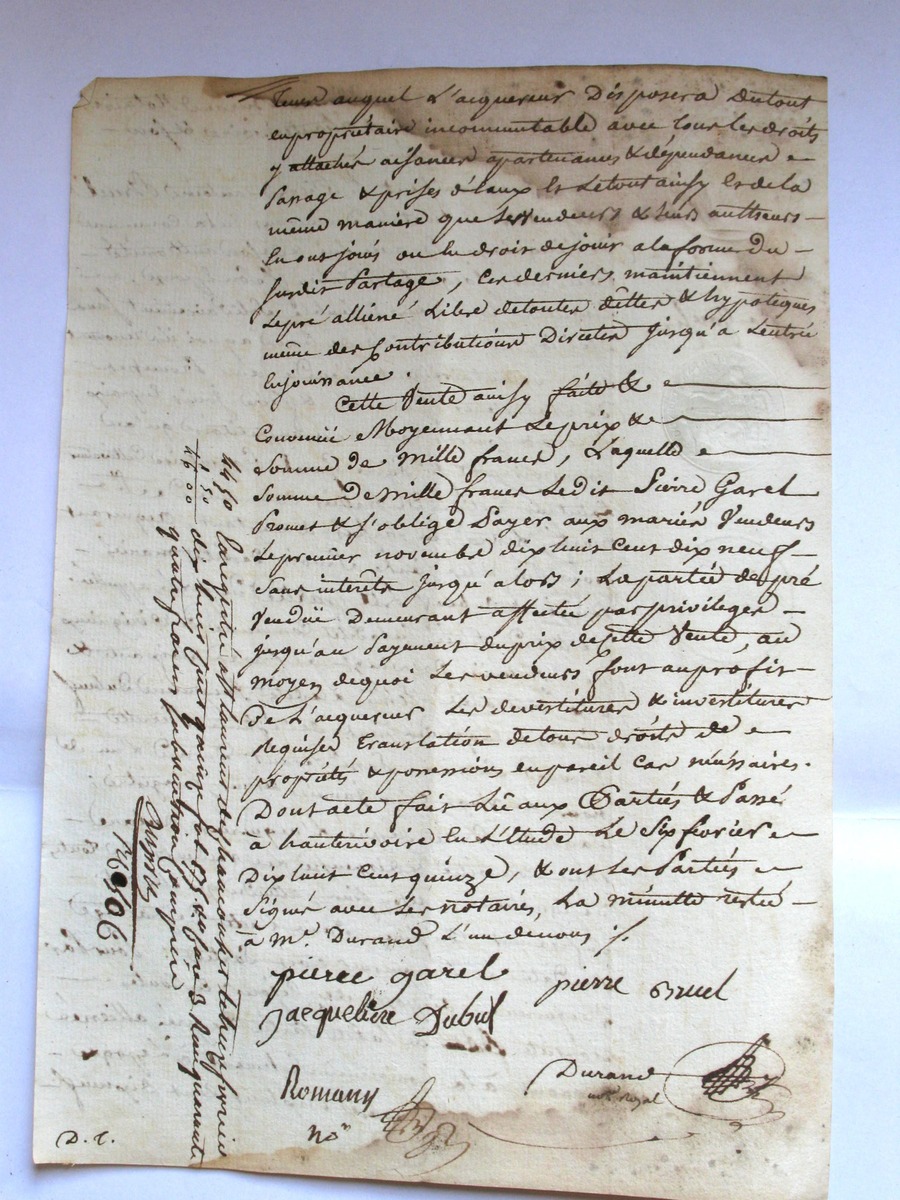 tems auquel l'acquereur Disposera du tout
en propriétaire incommutable avec tous les droits
y attachés aisances apartenances & dépendances
passage & prises d'eaux Et le tout ainsy & de la
même manière que les vendeurs & leurs autheurs
En ont joüis ou eu droit de jouir a la forme du
susdit Partage, Ces derniers maintiennent
Le pré alliéné Libre de toutes dêttes & hypotêques
même des Contributions Directes jusqu'a L'entrée
En jouissance.
Cette Vente ainsy faite &
Convenüe Moyennant Le prix &
Somme de Mille francs, Laquelle
Somme De mille francs Ledit Pierre Garel
Promet & s'oblige Payer aux mariés Vendeurs
Le premier novembre dix huit Cent dix neuf
Sans intérêts jusqu'alors ; La partie de pré
Vendüe Demeurant affectée par privilège
jusqu'au Payement du prix de Cette Vente, au
moyen de quoi Les vendeurs font au profit
De L'acquereur Les devestitures & investitures
Requises Translation de tous droits de
propriétés & possessions en pareil Cas néssaires.
Dont acte fait Lû aux Parties & Passé
à hauterivoire En L'Etude Le Six fevrier
Dix huit Cent quinze, & ont Les Parties
Signé avec Les notaires, La minutte restée
à Me. Durand L'un de nous ./.
pierre garel
pierre Bruel
Jacqueliere Dubuf
Romany
Nore
Durand
nore Royal
D. C.
44 50
1 50
46 00
Enregistré à St Laurent de Chamousset le treize fevrier
dix huit Cent quinze fol. 175 Vo Case 3 Reçu quarante
quatre francs subvention Comprise